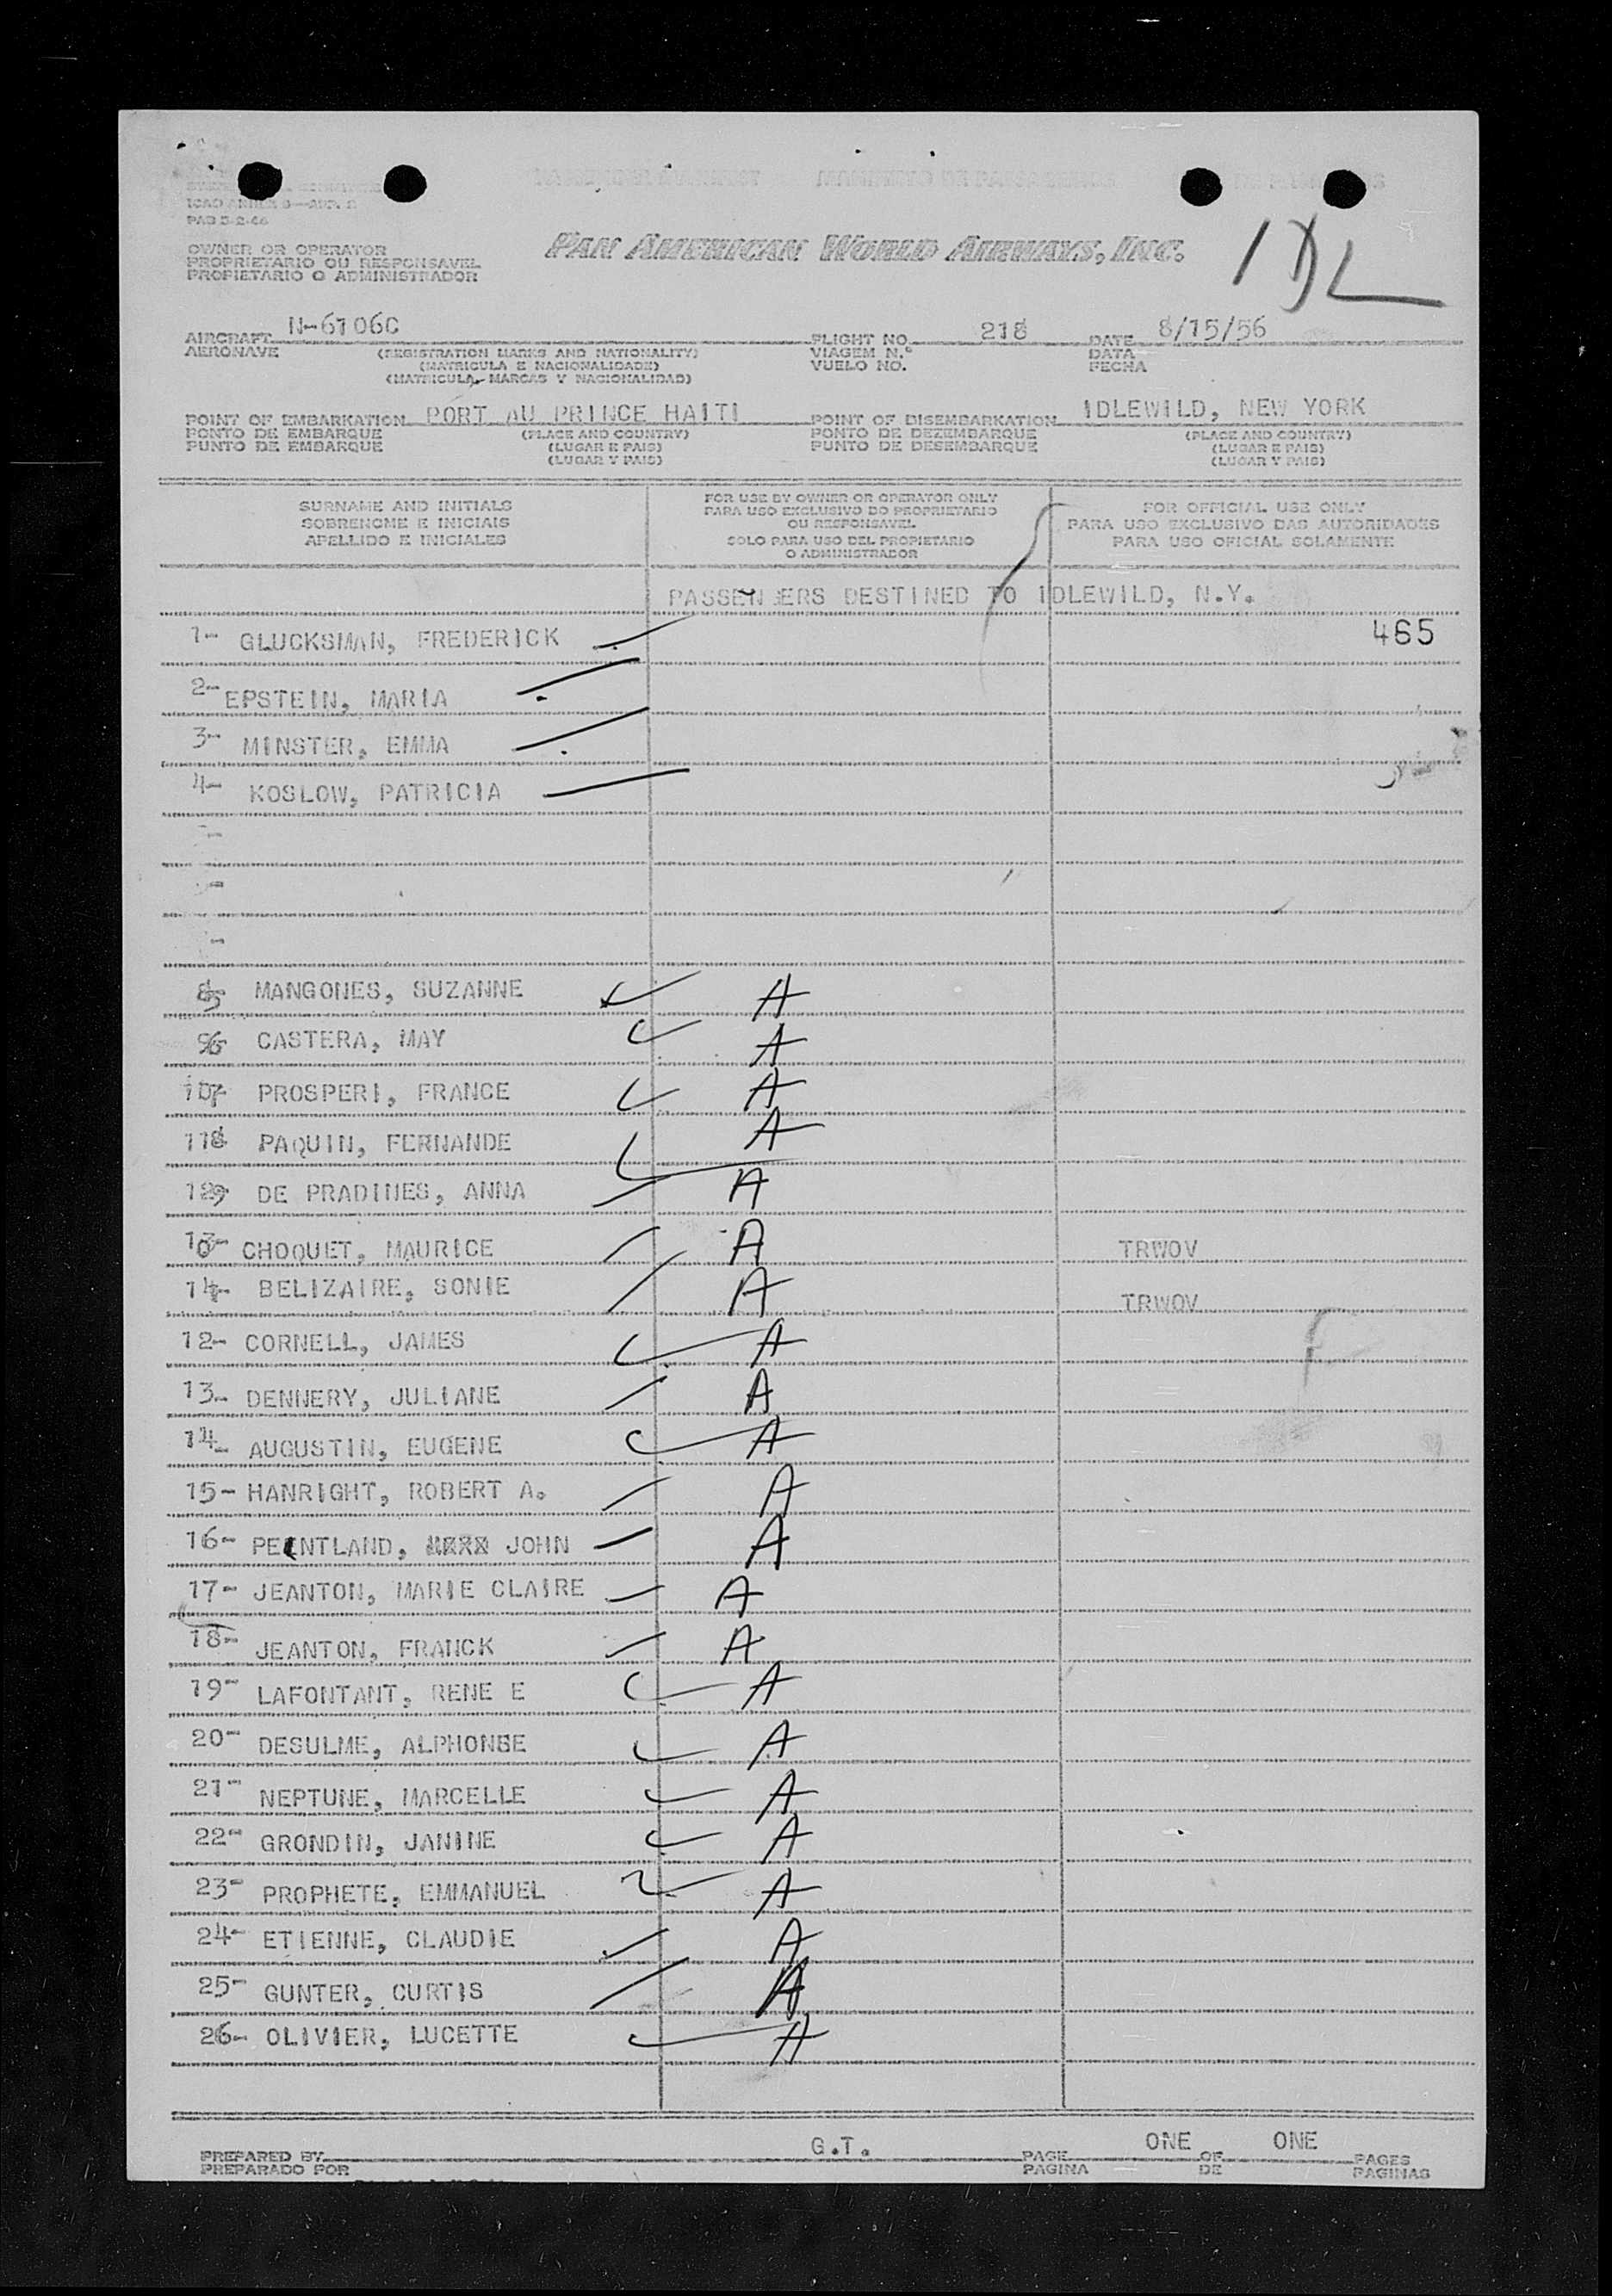 ICAO ANNEX 9—APP. 2
PAD 5-2-46
OWNER OR OPERATOR
PROPRIETARIO OU RESPONSAVEL
PROPIETARIO O ADMINISTRADOR
PAN AMERICAN WORLD AIRWAYS, INC.
IDL
AIRCRAFT N-6106C FLIGHT NO. 218 DATE 8/15/56
AERONAVE (REGISTRATION MARKS AND NATIONALITY) VIAGEM N.º DATA
(MATRICULA E NACIONALIDADE) VUELO NO. FECHA
(MATRICULA, MARCAS Y NACIONALIDAD)
POINT OF EMBARKATION PORT AU PRINCE HAITI POINT OF DISEMBARKATION IDLEWILD, NEW YORK
PONTO DE EMBARQUE (PLACE AND COUNTRY) PONTO DE DEZEMBARQUE (PLACE AND COUNTRY)
PUNTO DE EMBARQUE (LUGAR E PAIS) PUNTO DE DESEMBARQUE (LUGAR E PAIS)
(LUGAR Y PAIS) (LUGAR Y PAIS)
SURNAME AND INITIALS
SOBRENOME E INICIAIS
APELLIDO E INICIALES
FOR USE BY OWNER OR OPERATOR ONLY
PARA USO EXCLUSIVO DO PROPRIETARIO
OU RESPONSAVEL
SOLO PARA USO DEL PROPIETARIO
O ADMINISTRADOR
FOR OFFICIAL USE ONLY
PARA USO EXCLUSIVO DAS AUTORIDADES
PARA USO OFICIAL SOLAMENTE
PASSENGERS DESTINED TO IDLEWILD, N.Y.
1- GLUCKSMAN, FREDERICK 465
2- EPSTEIN, MARIA
3- MINSTER, EMMA
4- KOSLOW, PATRICIA
5- MANGONES, SUZANNE A
6- CASTERA, MAY A
7- PROSPERI, FRANCE A
8- PAQUIN, FERNANDE A
9- DE PRADINES, ANNA A
10- CHOQUET, MAURICE A TRWOV
11- BELIZAIRE, SONIE A TRWOV
12- CORNELL, JAMES A
13- DENNERY, JULIANE A
14- AUGUSTIN, EUGENE A
15- HANRIGHT, ROBERT A. A
16- PENTLAND, JOHN A
17- JEANTON, MARIE CLAIRE A
18- JEANTON, FRANCK A
19- LAFONTANT, RENE E A
20- DESULME, ALPHONSE A
21- NEPTUNE, MARCELLE A
22- GRONDIN, JANINE A
23- PROPHETE, EMMANUEL A
24- ETIENNE, CLAUDIE A
25- GUNTER, CURTIS A
26- OLIVIER, LUCETTE A
PREPARED BY G.T. PAGE ONE OF ONE PAGES
PREPARADO POR PAGINA DE PAGINAS